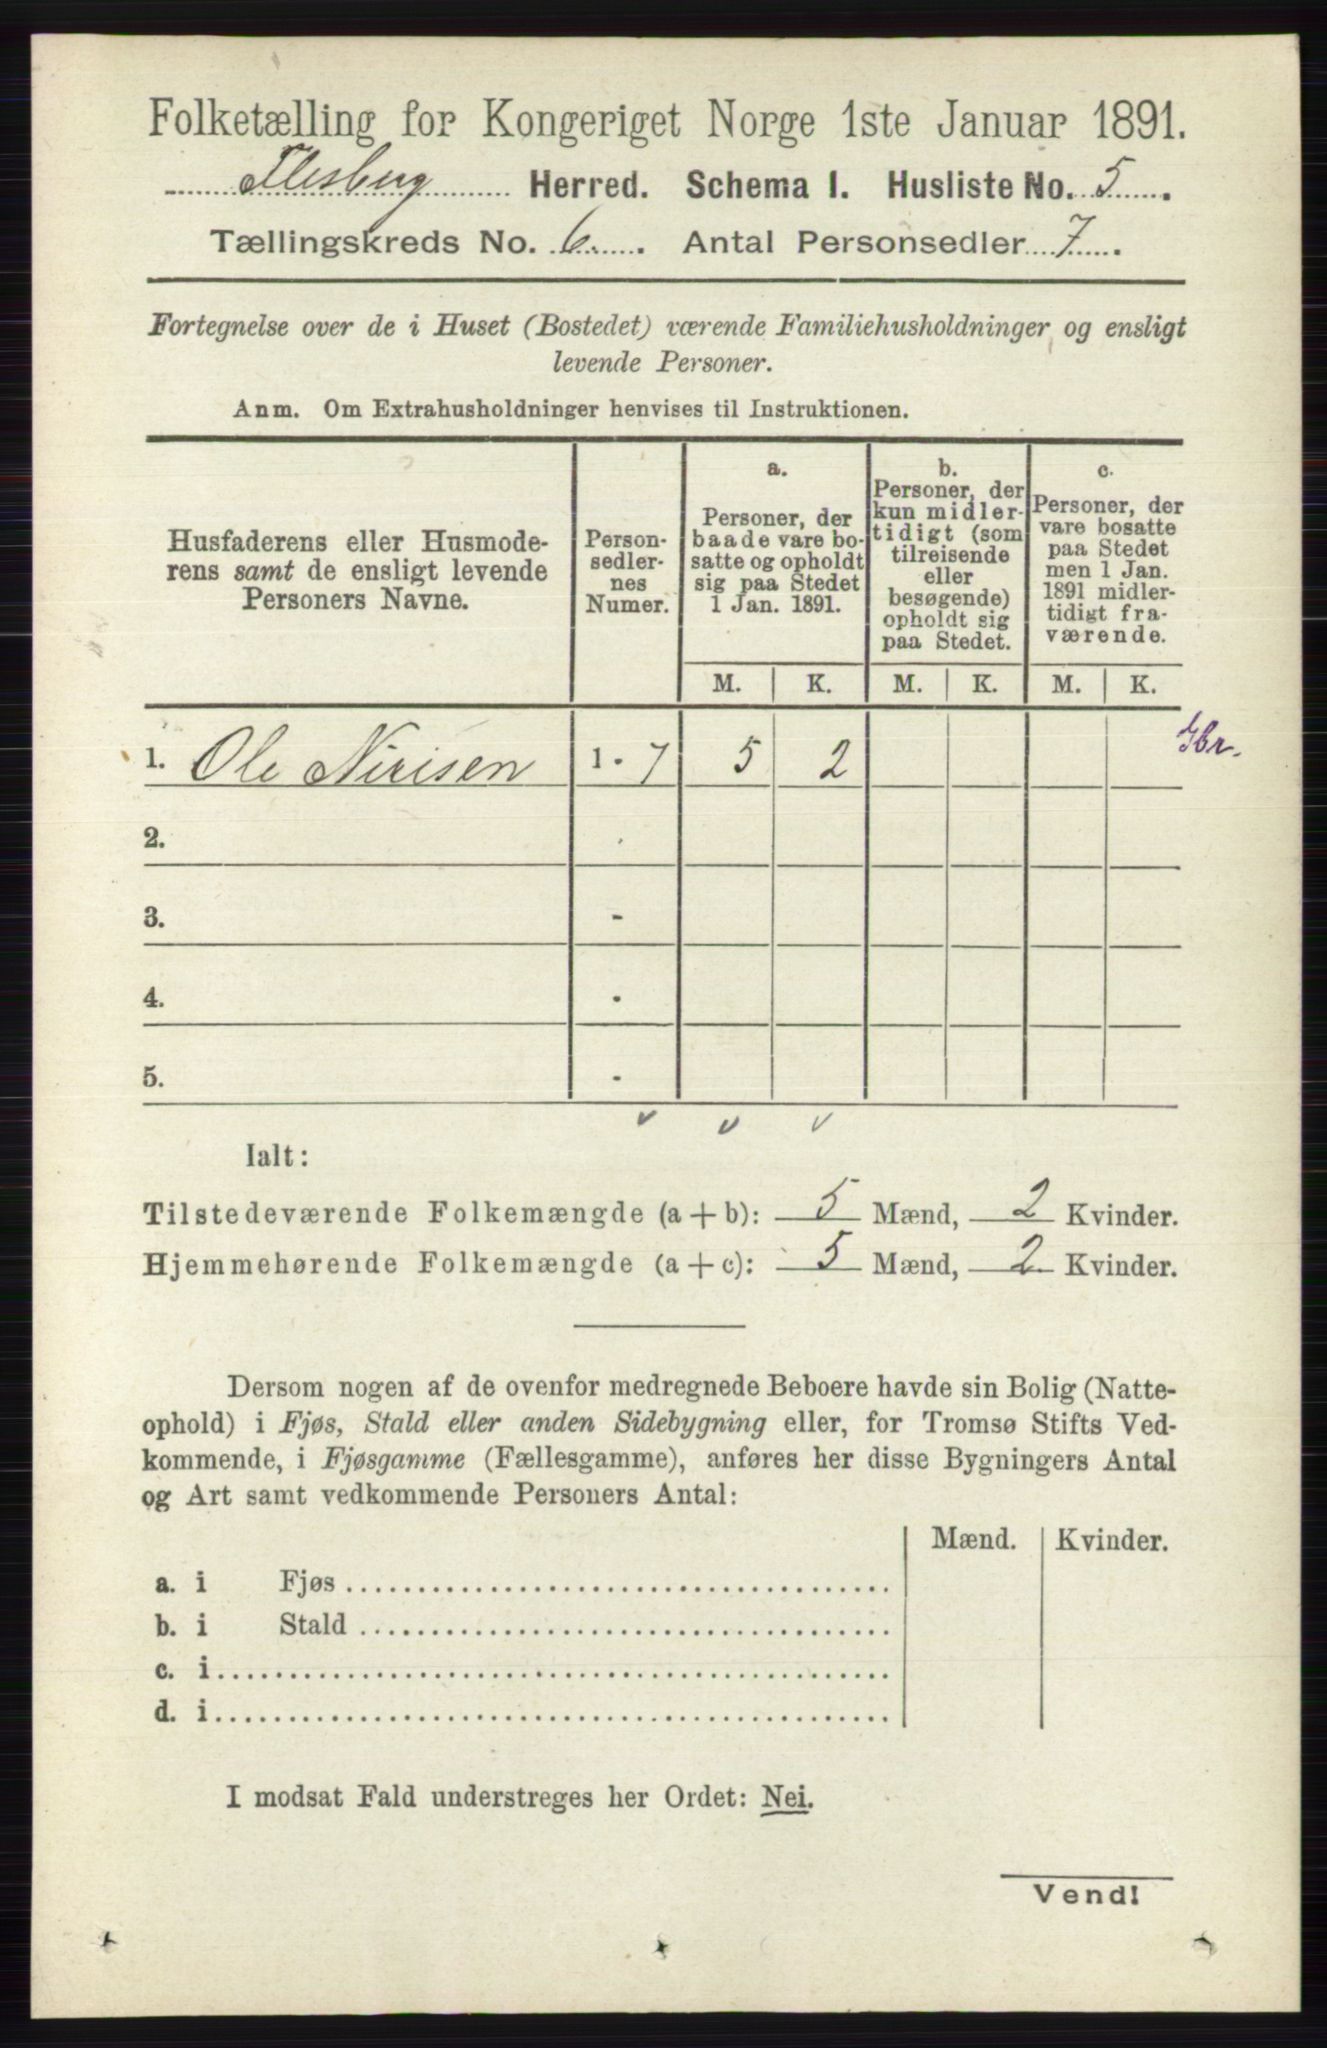 Folketælling for Kongeriget Norge 1ste Januar 1891.
Flesberg Herred. Schema I. Husliste No. 5.
Tællingskreds No. 6. Antal Personsedler 7.
Fortegnelse over de i Huset (Bostedet) værende Familiehusholdninger og ensligt
levende Personer.
Anm. Om Extrahusholdninger henvises til Instruktionen.
Husfaderens eller Husmode-
rens samt de ensligt levende
Personers Navne.
Person-
sedler-
nes
Numer.
a.
Personer, der
baade vare bo-
satte og opholdt
sig paa Stedet
1 Jan. 1891.
b.
Personer, der
kun midler-
tidigt (som
tilreisende
eller
besøgende)
opholdt sig
paa Stedet.
c.
Personer, der
vare bosatte
paa Stedet
men 1 Jan.
1891 midler-
tidigt fra-
værende.
M. K. M. K. M. K.
1. Ole Nirisen 1 - 7 5 2
2.
3. -
4. -
5. -
Ialt:
Tilstedeværende Folkemængde (a + b): 5 Mænd, 2 Kvinder.
Hjemmehørende Folkemængde (a + c): 5 Mænd, 2 Kvinder.
Dersom nogen af de ovenfor medregnede Beboere havde sin Bolig (Natte-
ophold) i Fjøs, Stald eller anden Sidebygning eller, for Tromsø Stifts Ved-
kommende, i Fjøsgamme (Fællesgamme), anføres her disse Bygningers Antal
og Art samt vedkommende Personers Antal:
Mænd. Kvinder.
a. i Fjøs
b. i Stald
c. i
d. i
I modsat Fald understreges her Ordet: Nei.
Vend!